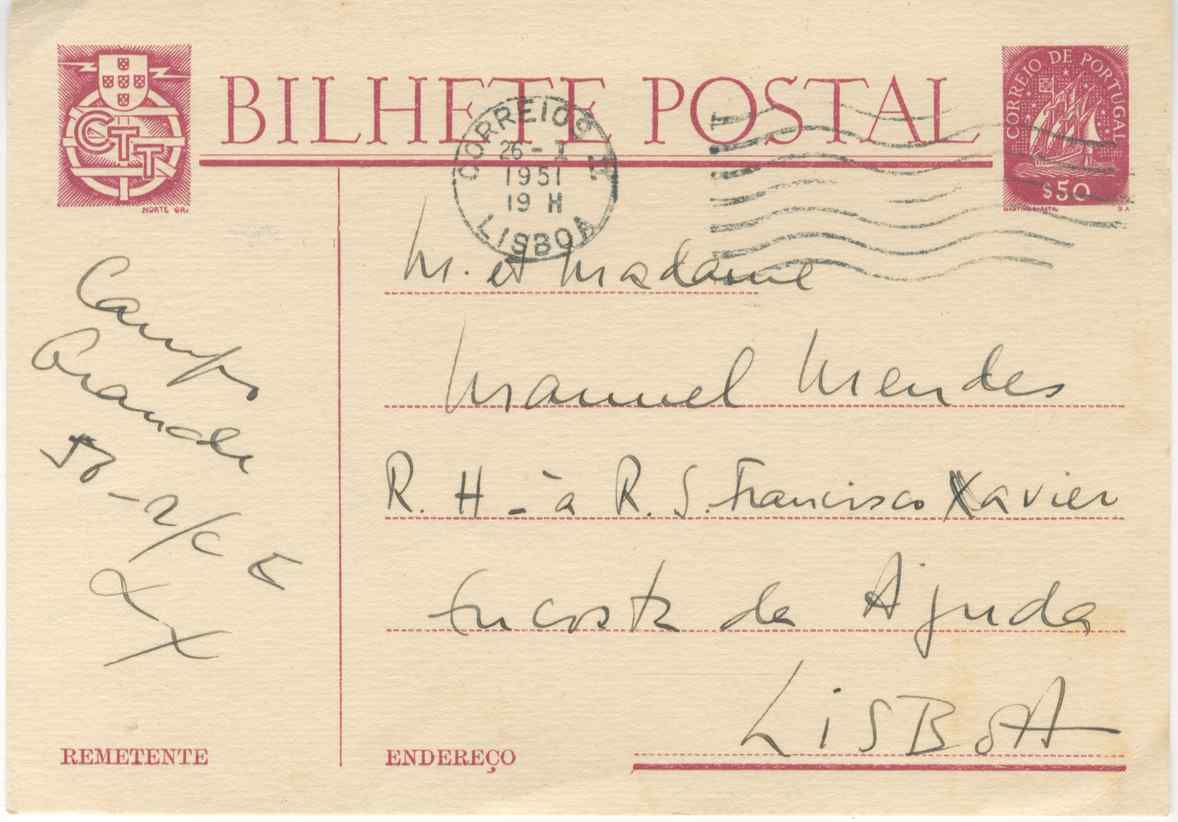 CTT
NORTE GR.
BILHETE POSTAL
CORREIO DE PORTUGAL
$50
CORREIOS
26 - I
1951
19 H
LISBOA
Campo
Grande
56 - 2/c E
LX
REMETENTE
M. et Madame
Manuel Mendes
R. H - à R. S. Francisco Xavier
Encosta da Ajuda
LISBOA
ENDEREÇO